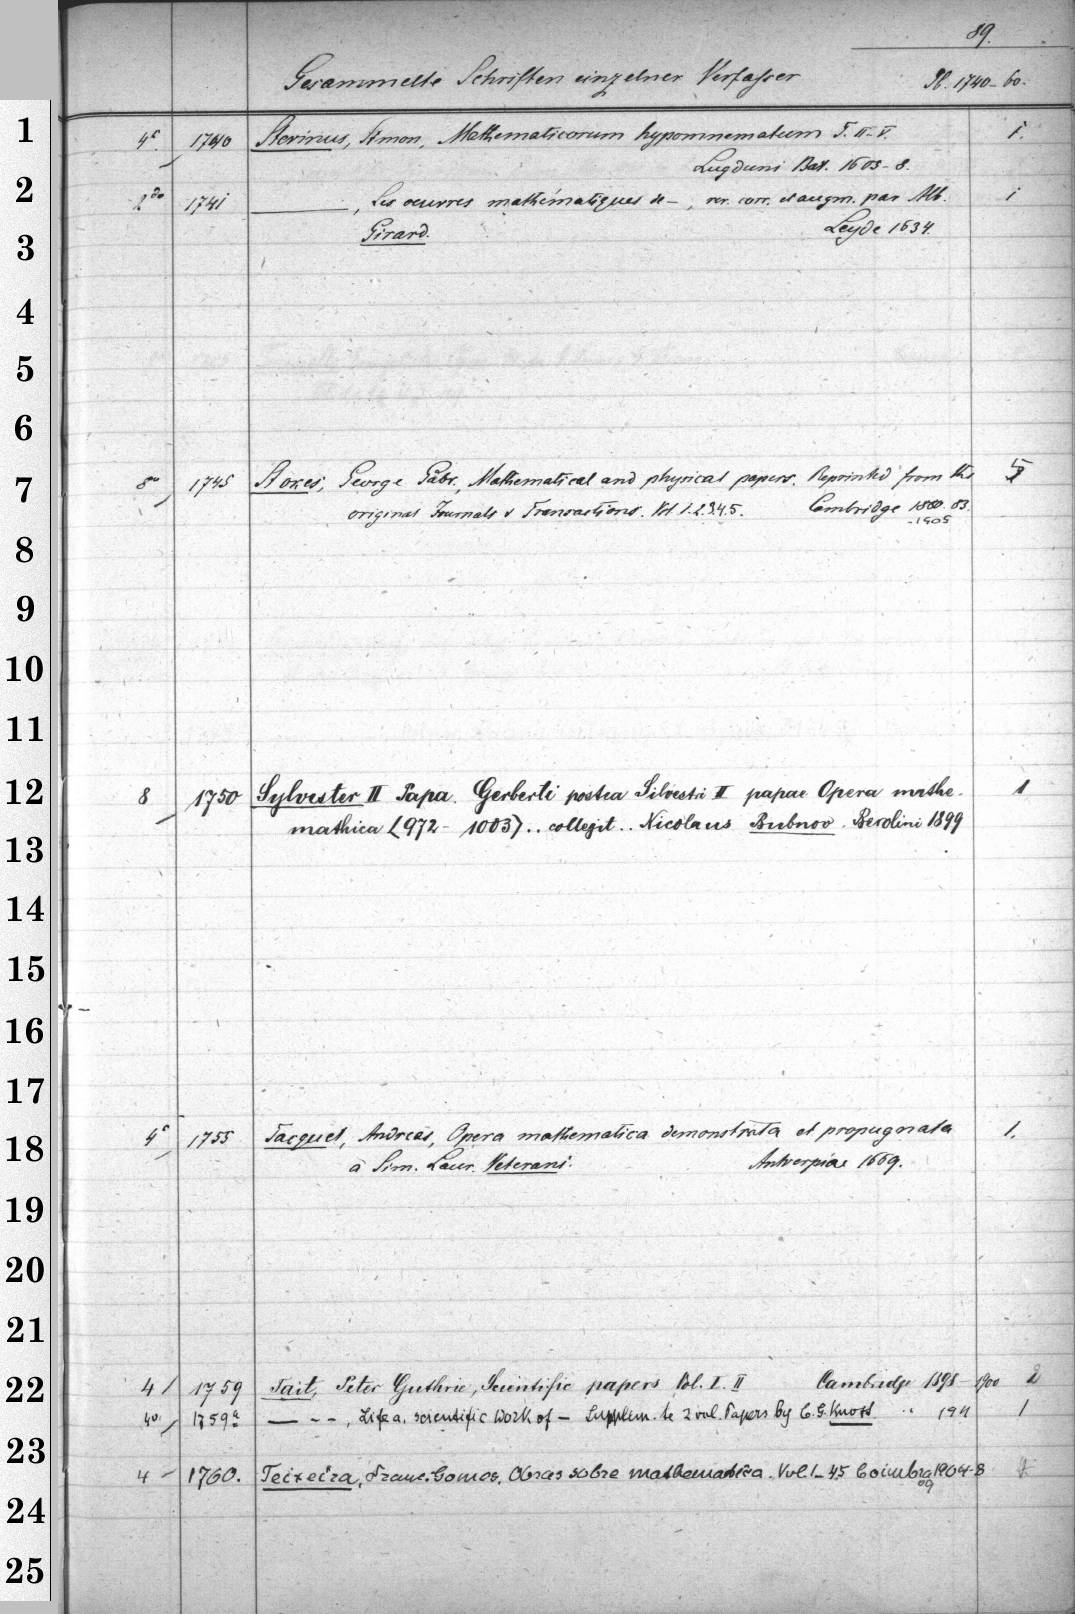 89.
Gesammelte Schriften einzelner Verfasser Pl. 1740-60.
1
4° 1740 Stevinus, Simon, Mathematicorum hypomnematum T. III-V. 1.
Lugduni Bat. 1605-8.
2
2do 1741 ———, Les oeuvres mathématiques de —, rev. corr. et augm. par Alb. 1
Girard. Leyde 1634.
3
4
5
6
7
8° 1745 Stokes, George Gabr., Mathematical and physical papers. Reprinted from the 5
original Journals & Transactions. Vol 1.2.3.4.5. Cambridge 1880-83.
-1905
8
9
10
11
12
8 1750 Sylvester II Papa. Gerberti postea Silvestri II papae Opera mathe-
mathica (972-1003) .. collegit .. Nicolaus Bubnov. Berolini 1899 1
13
14
15
16
17
18
4° 1755 Tacquet, Andreas, Opera mathematica demonstrata et propugnata 1.
a Sim. Laur. Veterani. Antverpiae 1669.
19
20
21
22
4 1759 Tait, Peter Guthrie, Scientific papers Vol. I. II Cambridge 1898-1900 2
4o. 1759a — - - , Life a. scientific Work of — Supplem. to 2 vol. Papers by C. G. Knott " 1911 1
23
4 - 1760. Teixeira, Franc. Gomes, Obras sobre mathematica. Vol. 1-4.5 Coimbra 1904-8
09
24
25